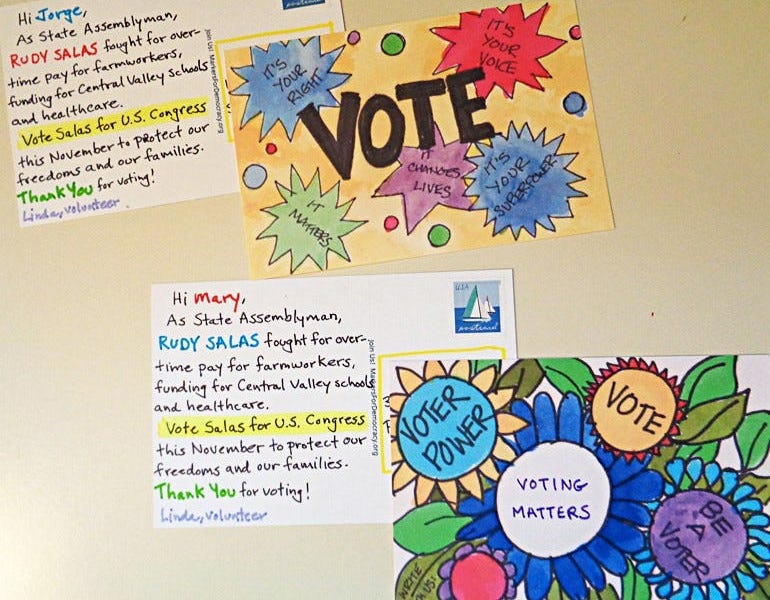 Hi Jorge,
As State Assemblyman,
RUDY SALAS fought for over-
time pay for farmworkers,
funding for Central Valley schools
and healthcare.
Vote Salas for U.S. Congress
this November to protect our
freedoms and our families.
Thank You for voting!
Linda, volunteer
Join Us! MarkersForDemocracy.org
IT'S
YOUR
RIGHT
IT'S
YOUR
VOICE
VOTE
IT
CHANGES
LIVES
IT'S
YOUR
SUPERPOWER
IT
MATTERS
Hi Mary,
As State Assemblyman,
RUDY SALAS fought for over-
time pay for farmworkers,
funding for Central Valley schools
and healthcare.
Vote Salas for U.S. Congress
this November to protect our
freedoms and our families.
Thank You for voting!
Linda, volunteer
Join Us! MarkersForDemocracy.org
USA
postcard
VOTER
POWER
VOTE
VOTING
MATTERS
BE
A
VOTER
WRITE
US!